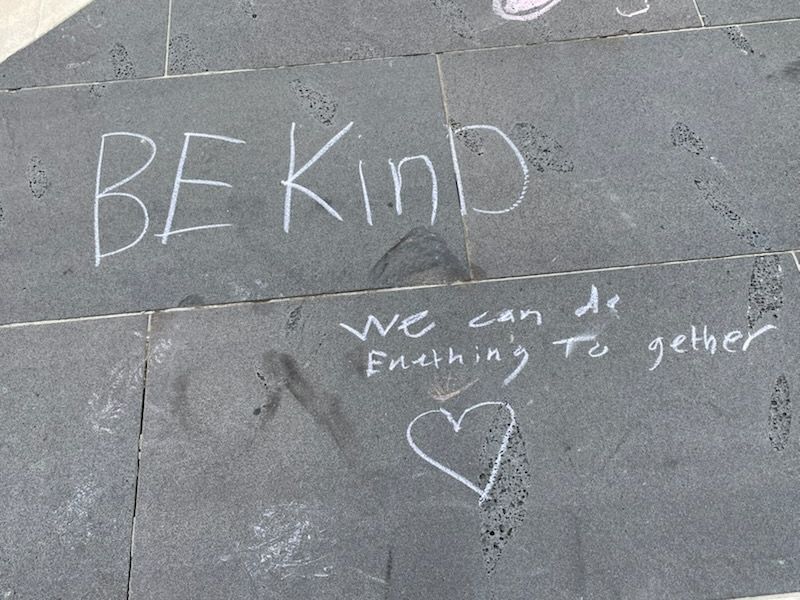 BE KinD
We can do
Enything To gether